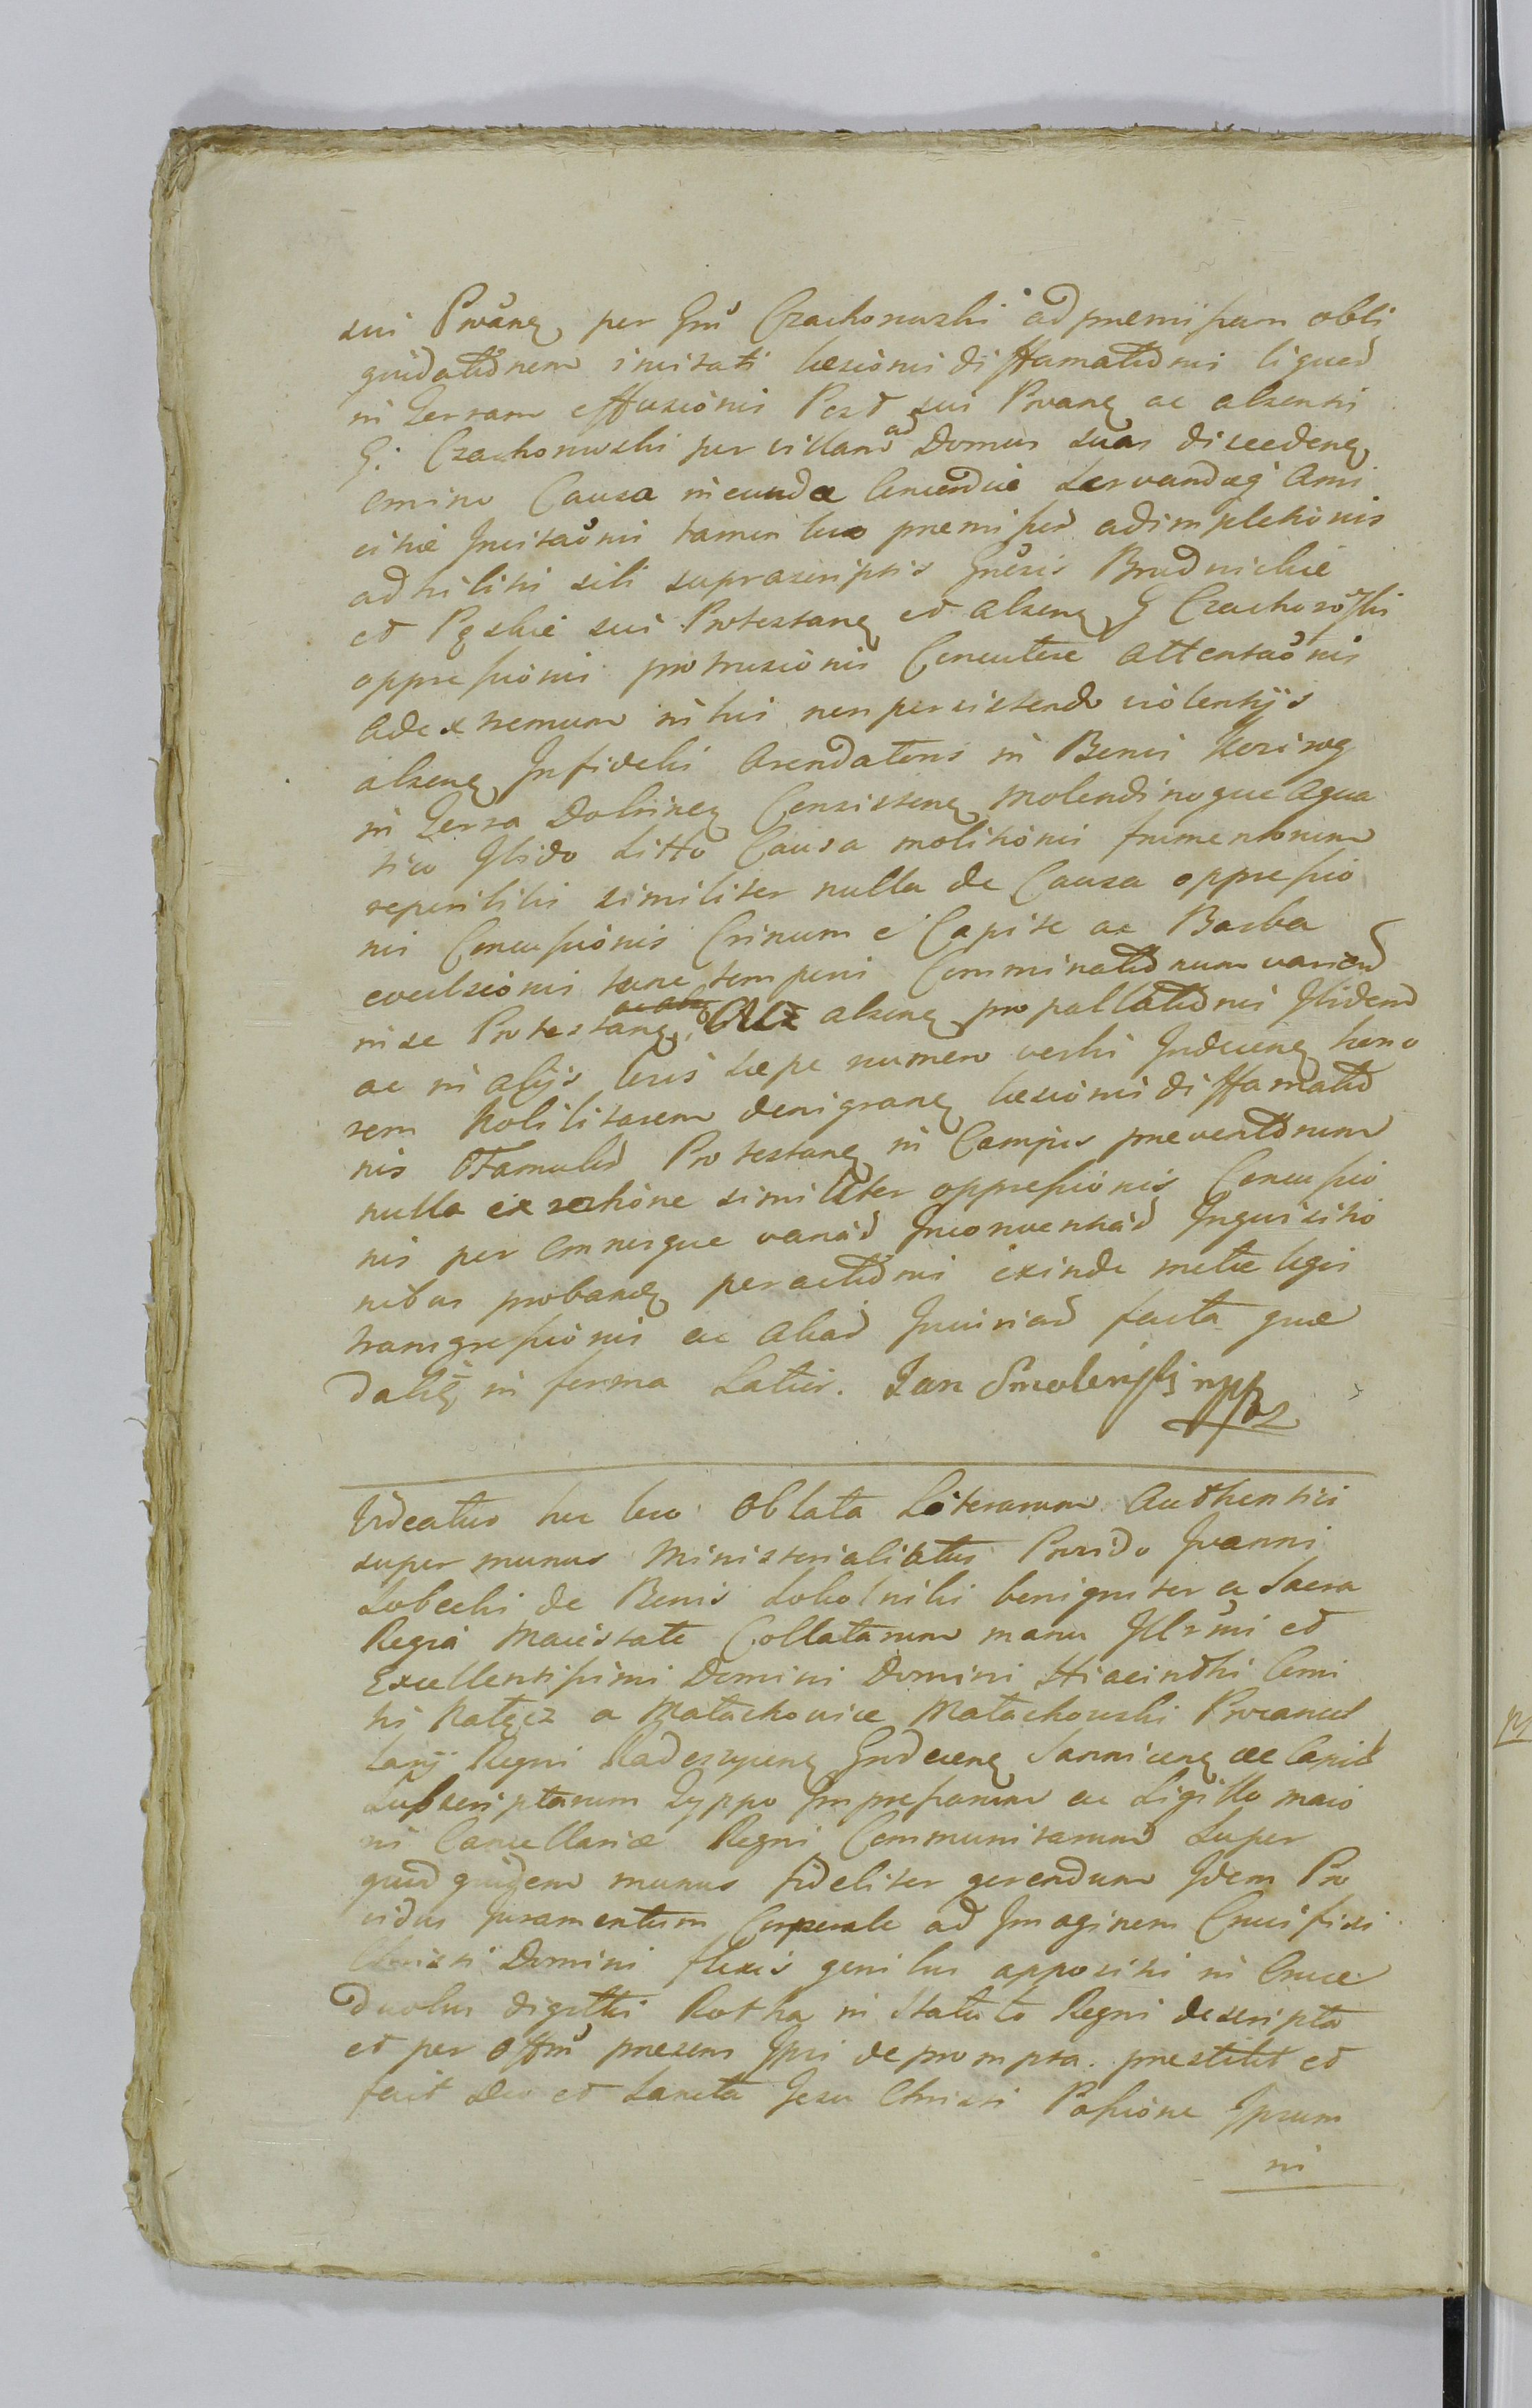 sui Prãng per Gm̃ Czachorowski ad præmissam obli
quidatiõnem invitati læsionis diffamatiõnis liquid
in Terram effusionis Post sui Prãng ac absentis
G: Czachorowski per villam ad Domus suas discedeng
omine Causa ineundæ Concordiæ servandæq Ami
citiæ Invitaõnis tamen loco præmissor adimpletionis
adhibitis sibi suprascriptis Gñosis Brudnickie
et Pęskie sui Protestang et abseng G Czachorowski
oppressionis protrusionis Concutere attentaõnis
ad extremum in his non persistendo violentijs
abseng Infidelis Arendatoris in Bonis
in Terra Dobrineg Consisteng Molendinoque Aqua
tico Ibidem sitto Causa molitionis frumentorum
reperibilis similiter nulla de Causa oppressio
nis Concussionis Crinum e Capite ac Barba
evulsionis tunc temporis Comminatiõnum variar
in se Protestang, abseng propallatiõnis Ibidem
ac in alijs locis sæpe numero verbis Indeceng hono
rem Nobilitarem denigrang læsionis diffamatiõ
nis Famulor Protestang in Campis præventiõnum
nulla exortione similiter oppressionis Concussio
nis per omnesque variad Inconvenniad Inquisitio
nibus proband peractiõnis exinde metæ legis
transgressionis ac aliad Iniuriad facta quæ
dabit in forma Latior. Jan Smoleński mpp
Ideatur hic loco Oblata Literarum Authentici
super munus Ministerialitatis Provido Joanni
Sobecki de Bonis benigniter a Sacra
Regia Maiestate Collatarum manu Illrmi et
Excellentissimi Domini Domini Hiacinthi Comi
tis Nałęcz a Małachowice Małachowski Procancel
larij Regni Gndceng ac Capit
Subscriptarum Typpo Impressarum ac Sigillo maio
ri Cancellariæ Regni Communitarum Super
quod quidem munus fideliter gerendum Idem Pro
vidus Juramentum Corporale ad Imaginem Crucifixi
Christi Domini flexis genibus appositis in Cruce
duobus digittis Rotha in Statuto Regni descripta
et per Offm̃ præsens Ipsi deprompta. præstitit et
fecit Deo et Sancta Jesu Christi Passione Ipsum
in